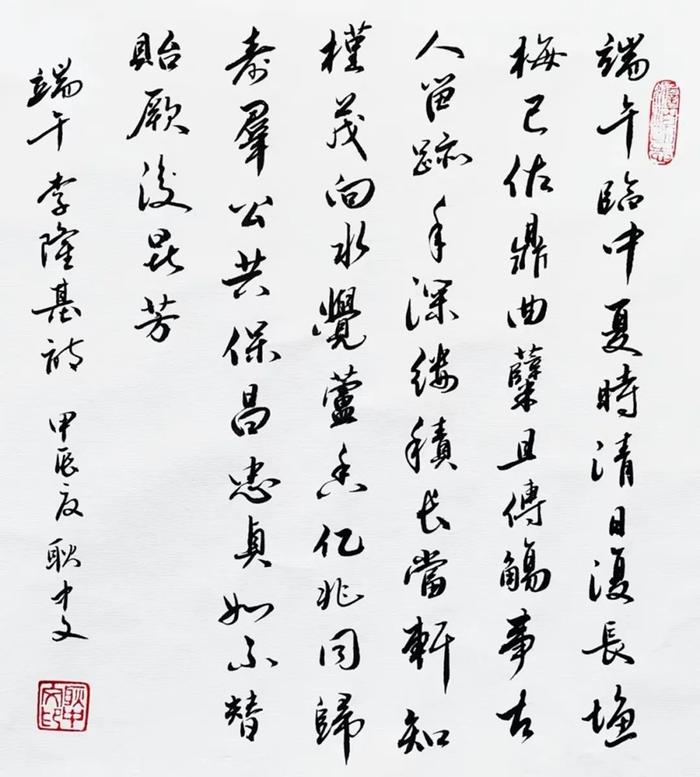 端午臨中夏時清日復長塩
梅已佐鼎曲糵且傳觴事古
人留跡年深縷積長當軒知
槿茂向水覺蘆香亿兆同歸
寿羣公共保昌忠貞如不替
貽厥後昆芳
端午 李隆基詩 甲辰夏 耿中文
耿中文印